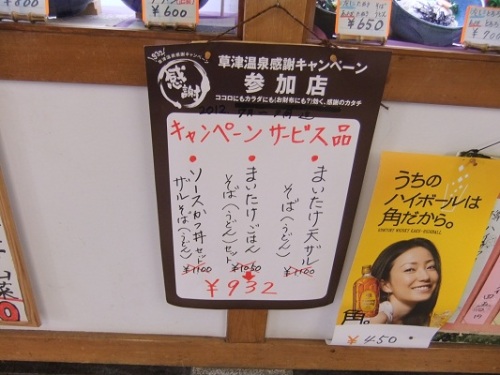 ¥800
¥600
¥650
草津温泉感謝キャンペーン
感謝
草津温泉感謝キャンペーン
参加店
ココロにもカラダにも(お財布にも?)効く、感謝のカタチ
キャンペーンサービス品
●まいたけ天ザル
そば(うどん)
¥1100
●まいたけごはん
そば(うどん)セット
¥1050
●ソースかつ丼セット
ザルそば(うどん)
¥1100
¥932
うちの
ハイボールは
角だから。
角。
¥450
山菜